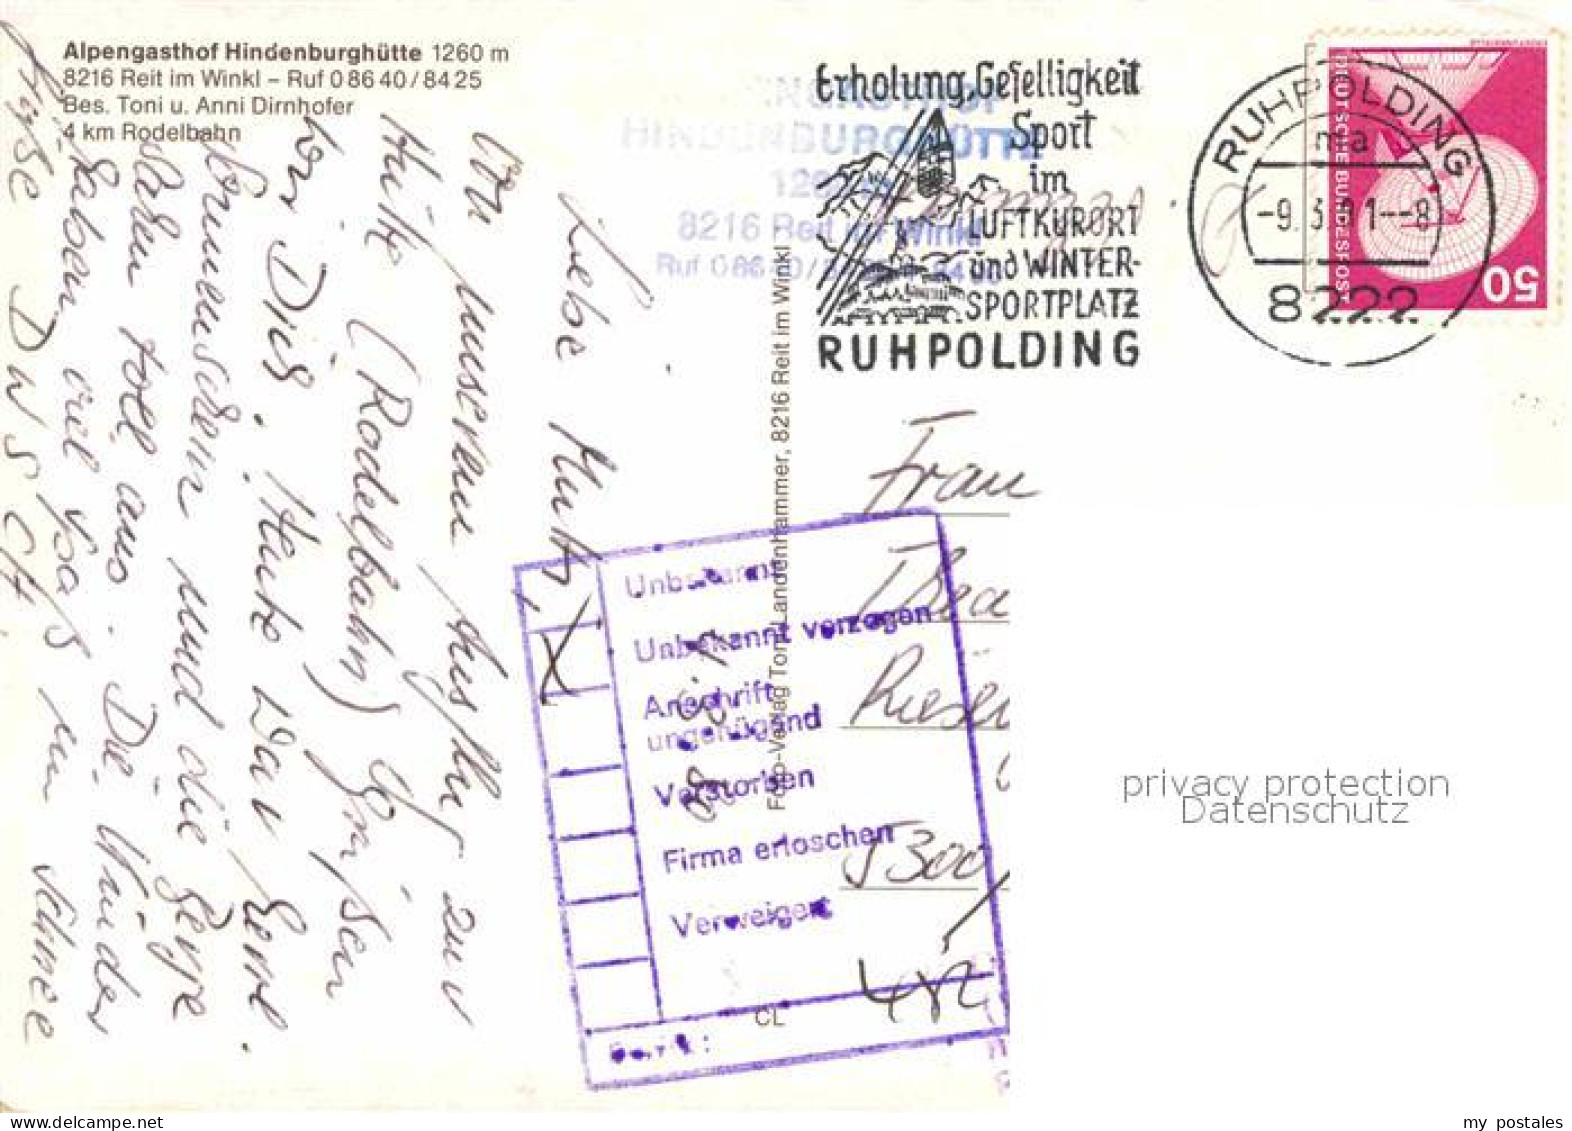 Alpengasthof Hindenburghütte 1260 m
8216 Reit im Winkl – Ruf 0 86 40 / 84 25
Bes. Toni u. Anni Dirnhofer
4 km Rodelbahn
HINDENBURGHÜTTE
8216 Reit im Winkl
Erholung, Geselligkeit
Sport
im
LUFTKURORT
und WINTER-
SPORTPLATZ
RUHPOLDING
RUHPOLDING
ma
-8
8222
DEUTSCHE BUNDESPOST
50
Liebe
Von unserem Ausflug zur
Hütte (Rodelbahn) grüßen
wir Dich. Heute war
und die
sahen toll aus. Die Kinder
haben viel Spaß im Schnee
Foto-Verlag Toni Landenhammer, 8216 Reit im Winkl
CL
Frau
Thea
5300
Unbekannt
Unbekannt verzogen
X
Anschrift
ungenügend
Verstorben
Firma erloschen
Verweigert
privacy protection
Datenschutz
my_postales